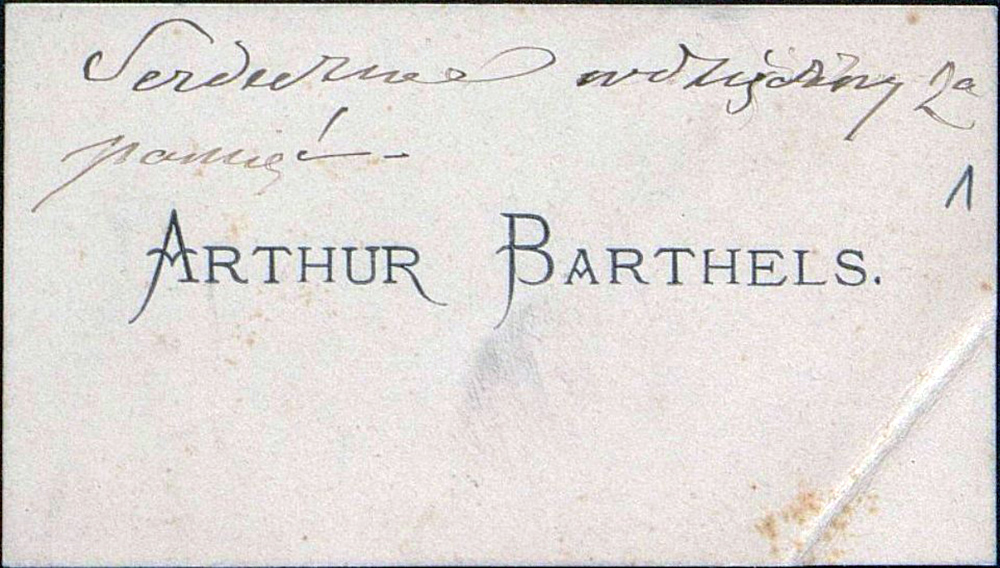 Serdeczne wdzięczny za
pamięć –
1
ARTHUR BARTHELS.